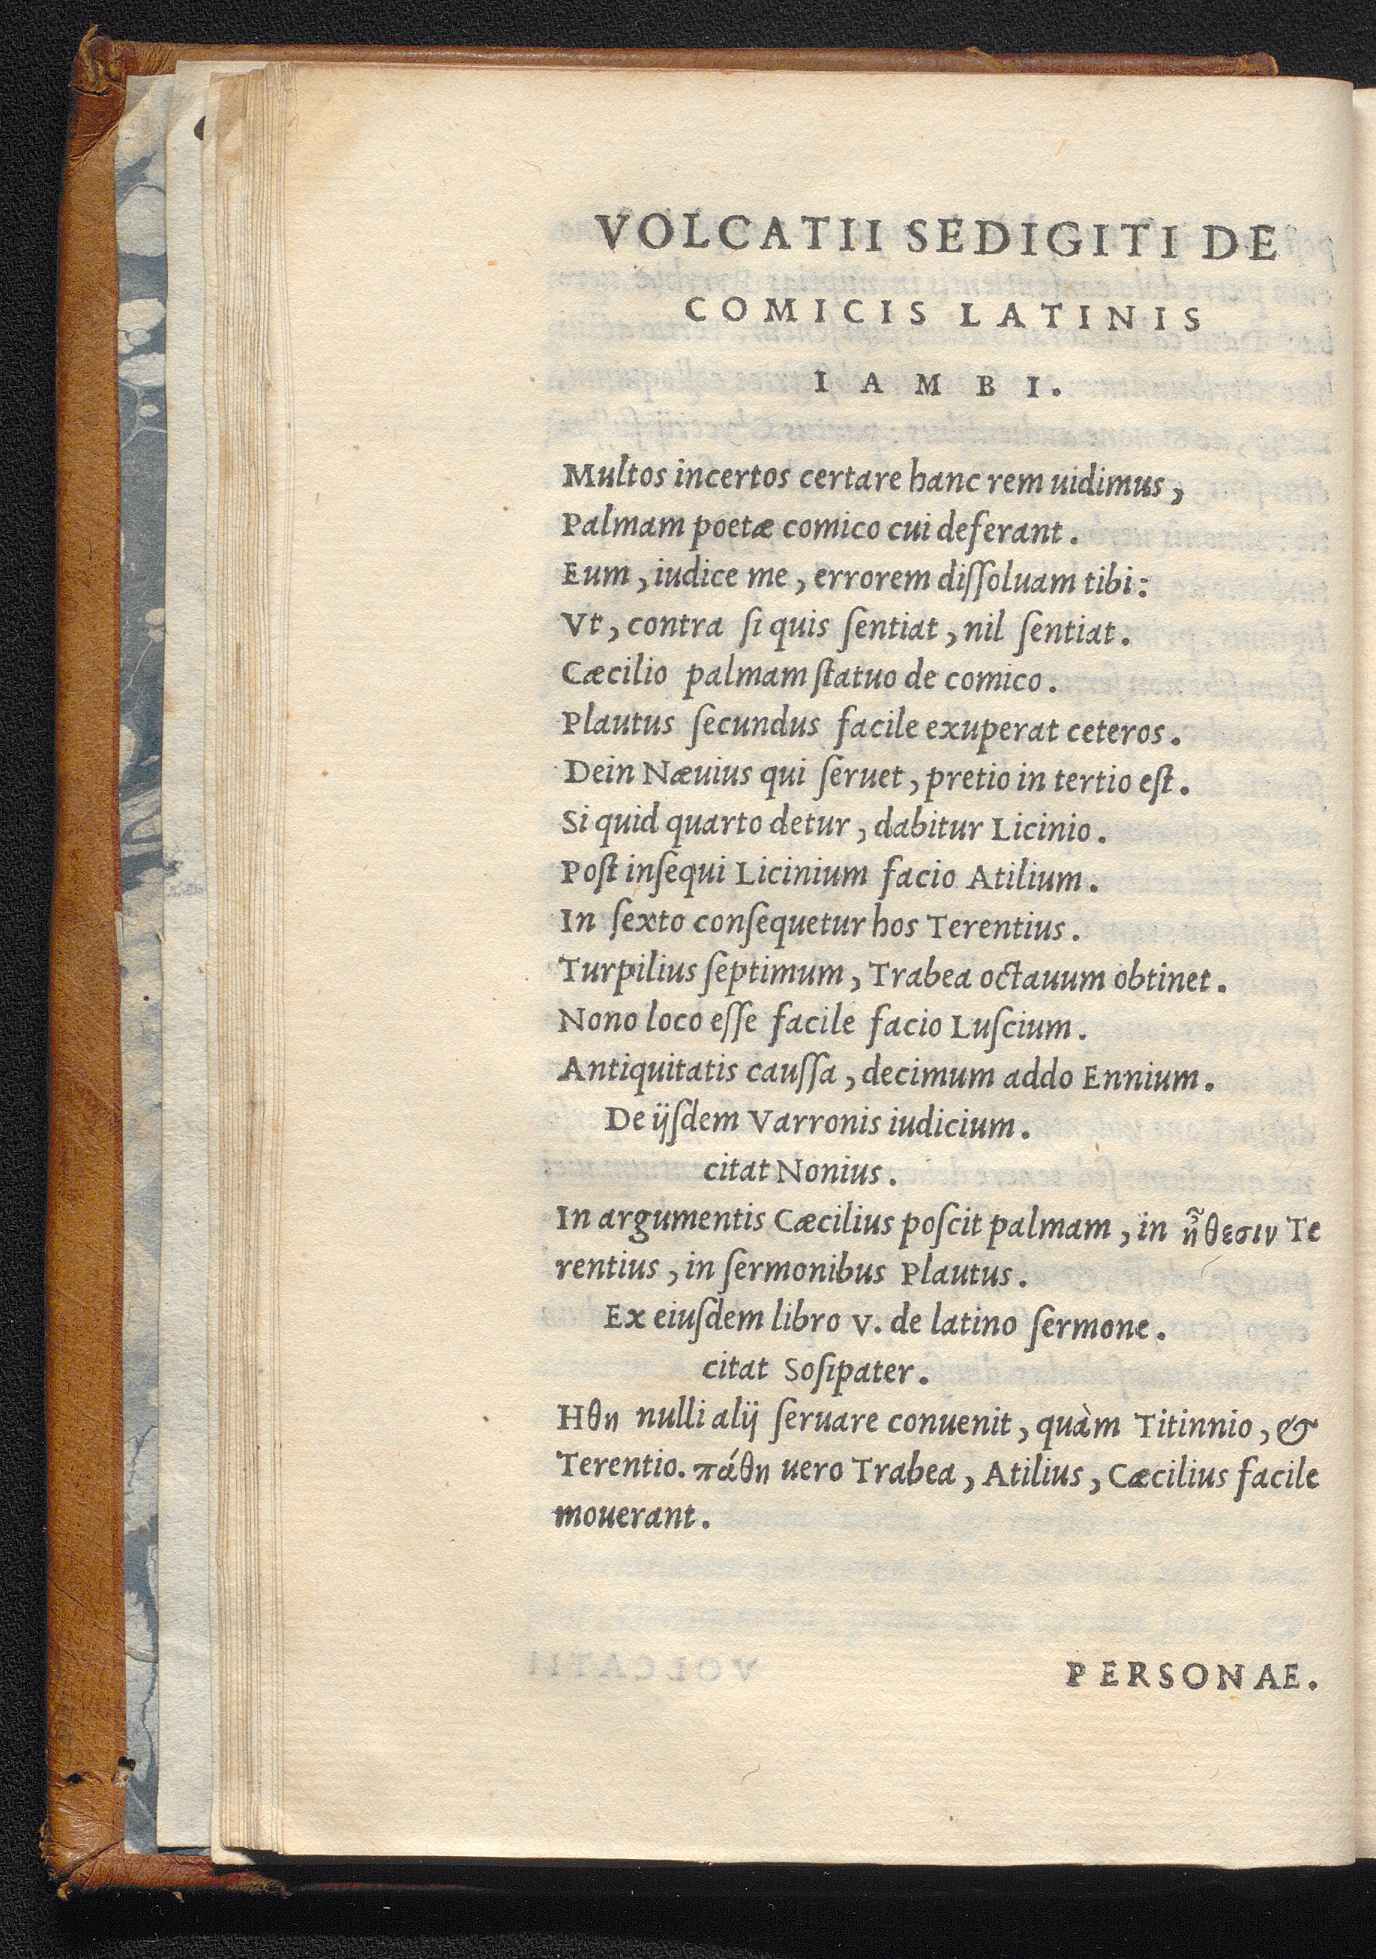 VOLCATII SEDIGITI DE
COMICIS LATINIS
IAMBI.
Multos incertos certare hanc rem uidimus,
Palmam poetæ comico cui deferant.
Eum, iudice me, errorem diſſoluam tibi:
Vt, contra ſi quis ſentiat, nil ſentiat.
Cæcilio palmam ſtatuo de comico.
Plautus ſecundus facile exuperat ceteros.
Dein Næuius qui ſeruet, pretio in tertio eſt.
Si quid quarto detur, dabitur Licinio.
Poſt inſequi Licinium facio Atilium.
In ſexto conſequetur hos Terentius.
Turpilius ſeptimum, Trabea octauum obtinet.
Nono loco eſſe facile facio Luſcium.
Antiquitatis cauſſa, decimum addo Ennium.
De ijſdem Varronis iudicium.
citat Nonius.
In argumentis Cæcilius poſcit palmam, in ἤθεσιν Te
rentius, in ſermonibus Plautus.
Ex eiuſdem libro v. de latino ſermone.
citat Soſipater.
Hθη nulli alij ſeruare conuenit, quàm Titinnio, &
Terentio. πάθη uero Trabea, Atilius, Cæcilius facile
mouerant.
PERSONAE.